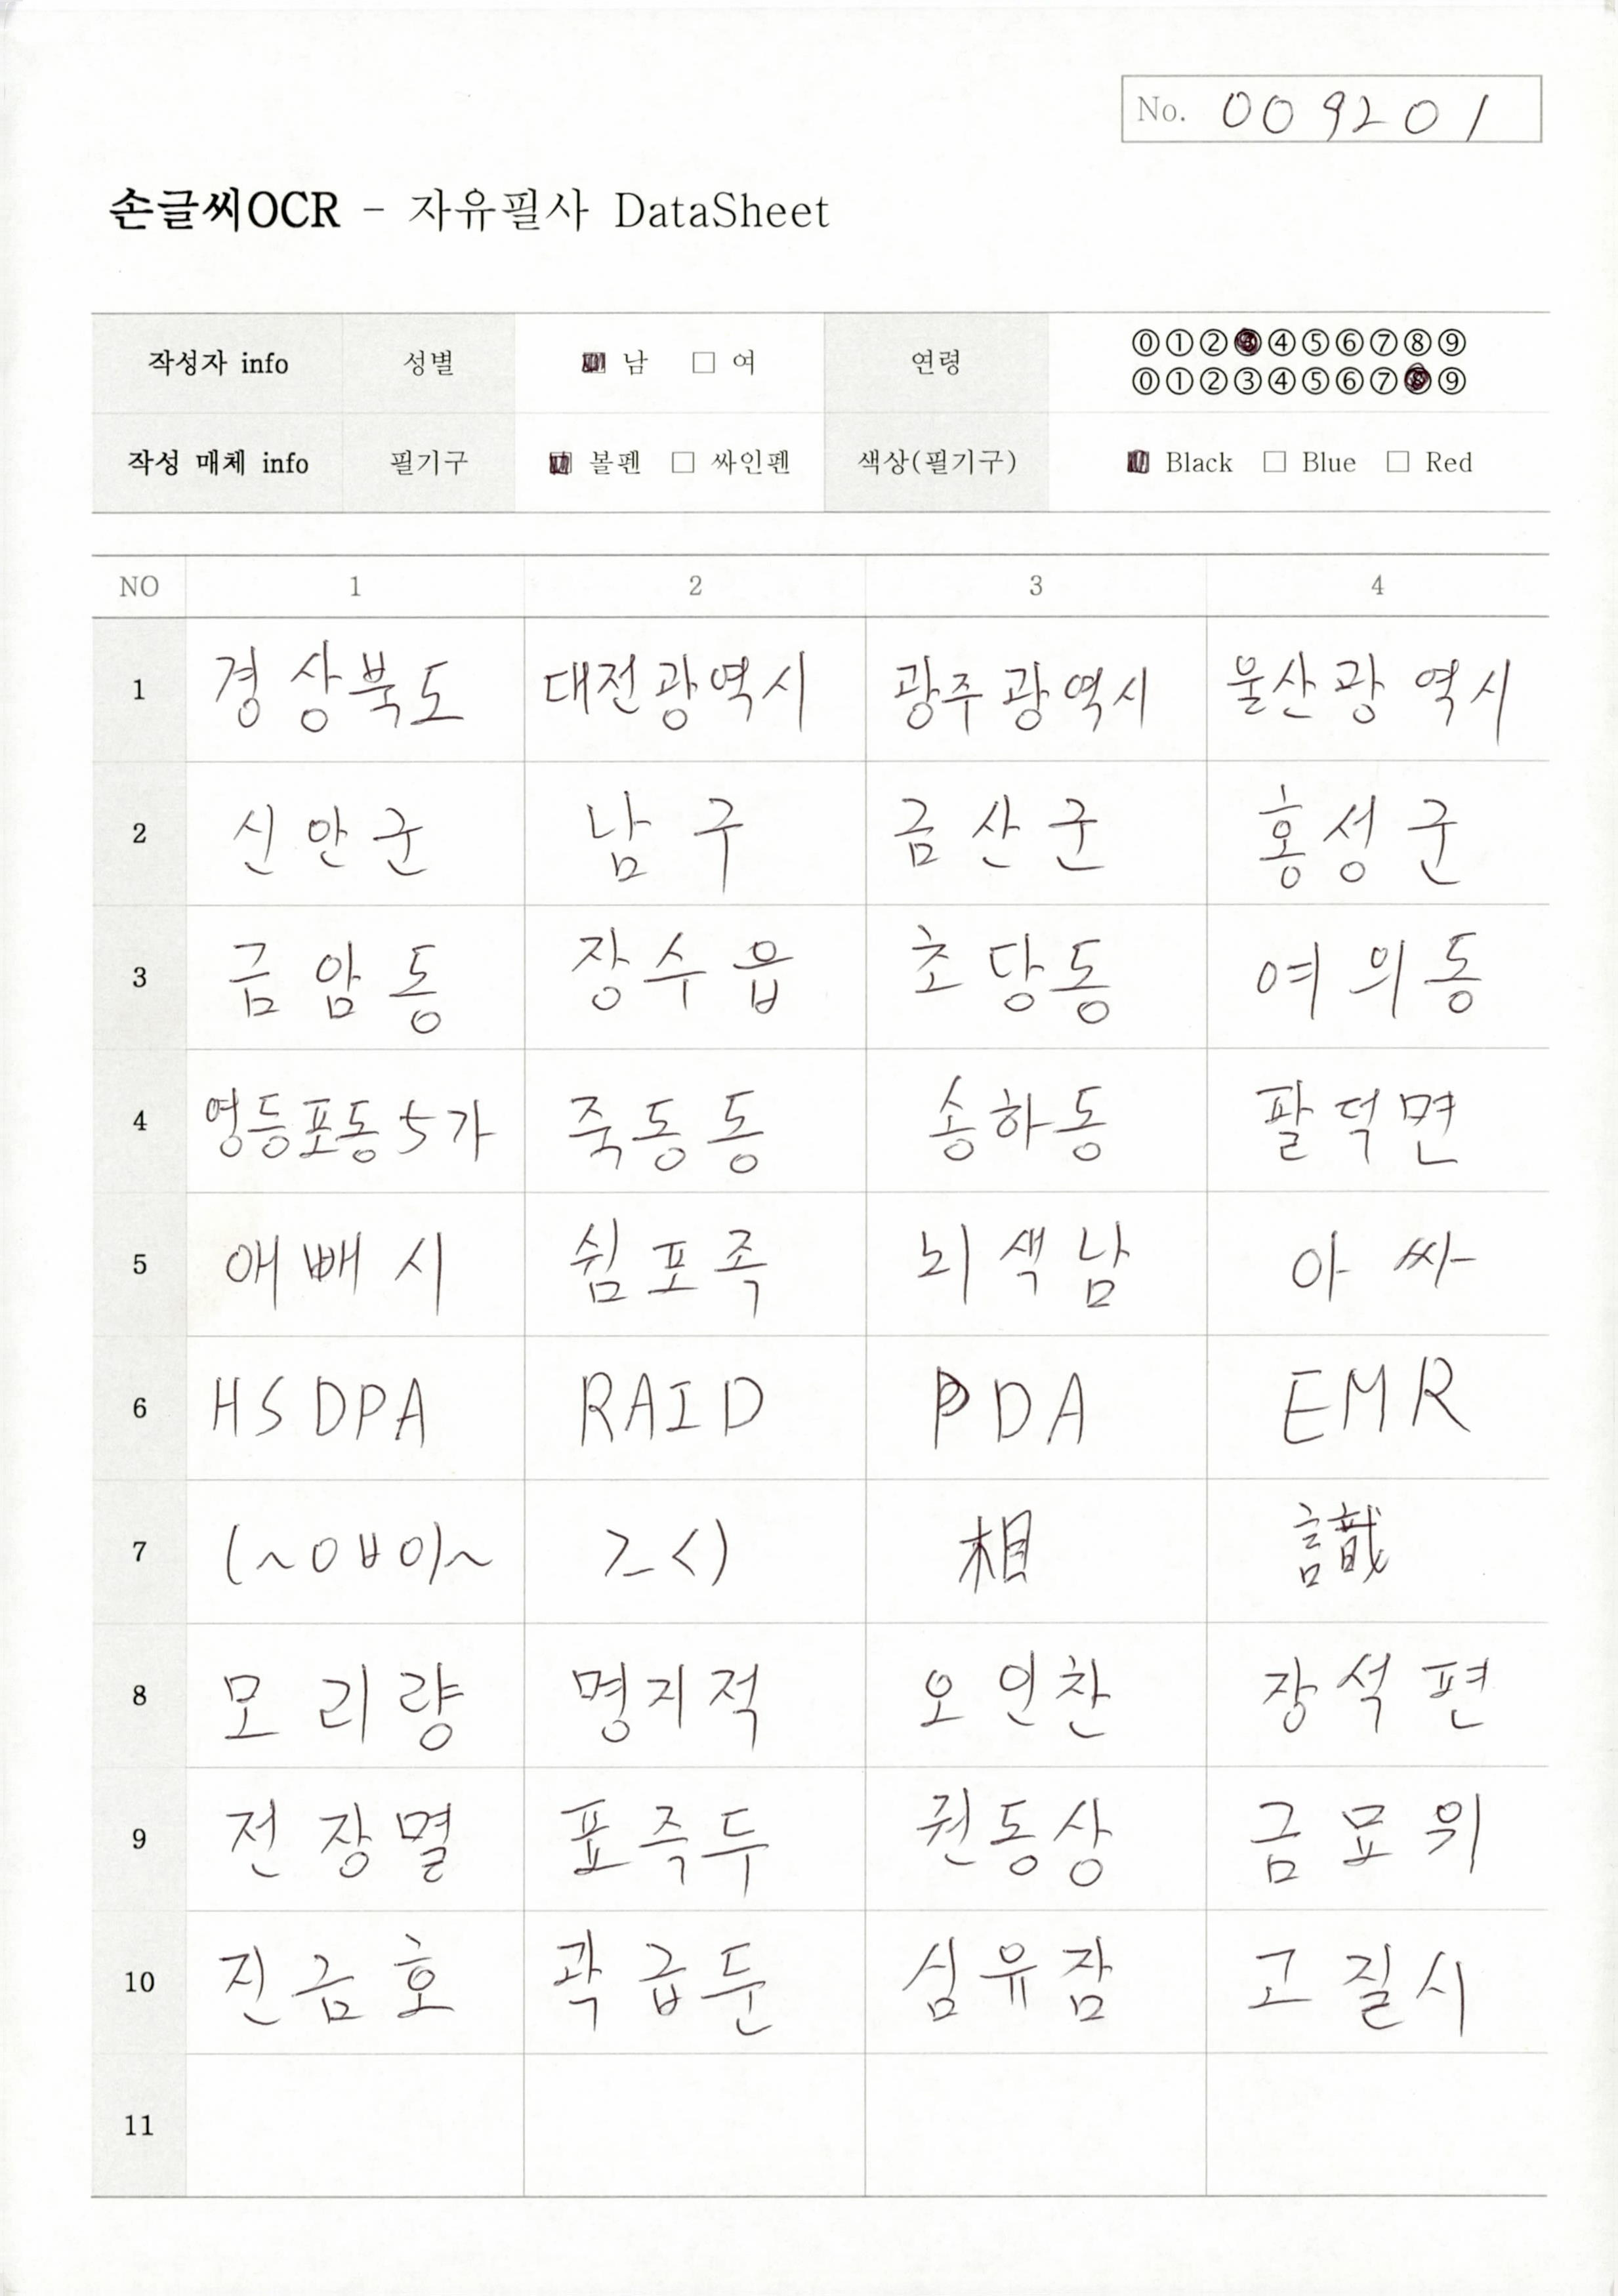 No. 009201
손글씨OCR - 자유필사 DataSheet
작성자 info 성별 남 여 연령 0 1 2 3 4 5 6 7 8 9
0 1 2 3 4 5 6 7 8 9
작성 매체 info 필기구 볼펜 싸인펜 색상(필기구) Black Blue Red
NO 1 2 3 4
1 경상북도 대전광역시 광주광역시 울산광역시
2 신안군 남구 금산군 홍성군
3 금암동 장수읍 초당동 여의동
4 영등포동5가 죽동동 송하동 팔덕면
5 애빼시 쉼포족 뇌색남 아싸
6 HSDPA RAID PDA EMR
7 (~ㅇㅂ이)~ >_<) 相 識
8 모리량 명지적 오인찬 장석편
9 전장멸 표즉두 권동상 금묘위
10 진금호 곽급둔 심유잠 고질시
11